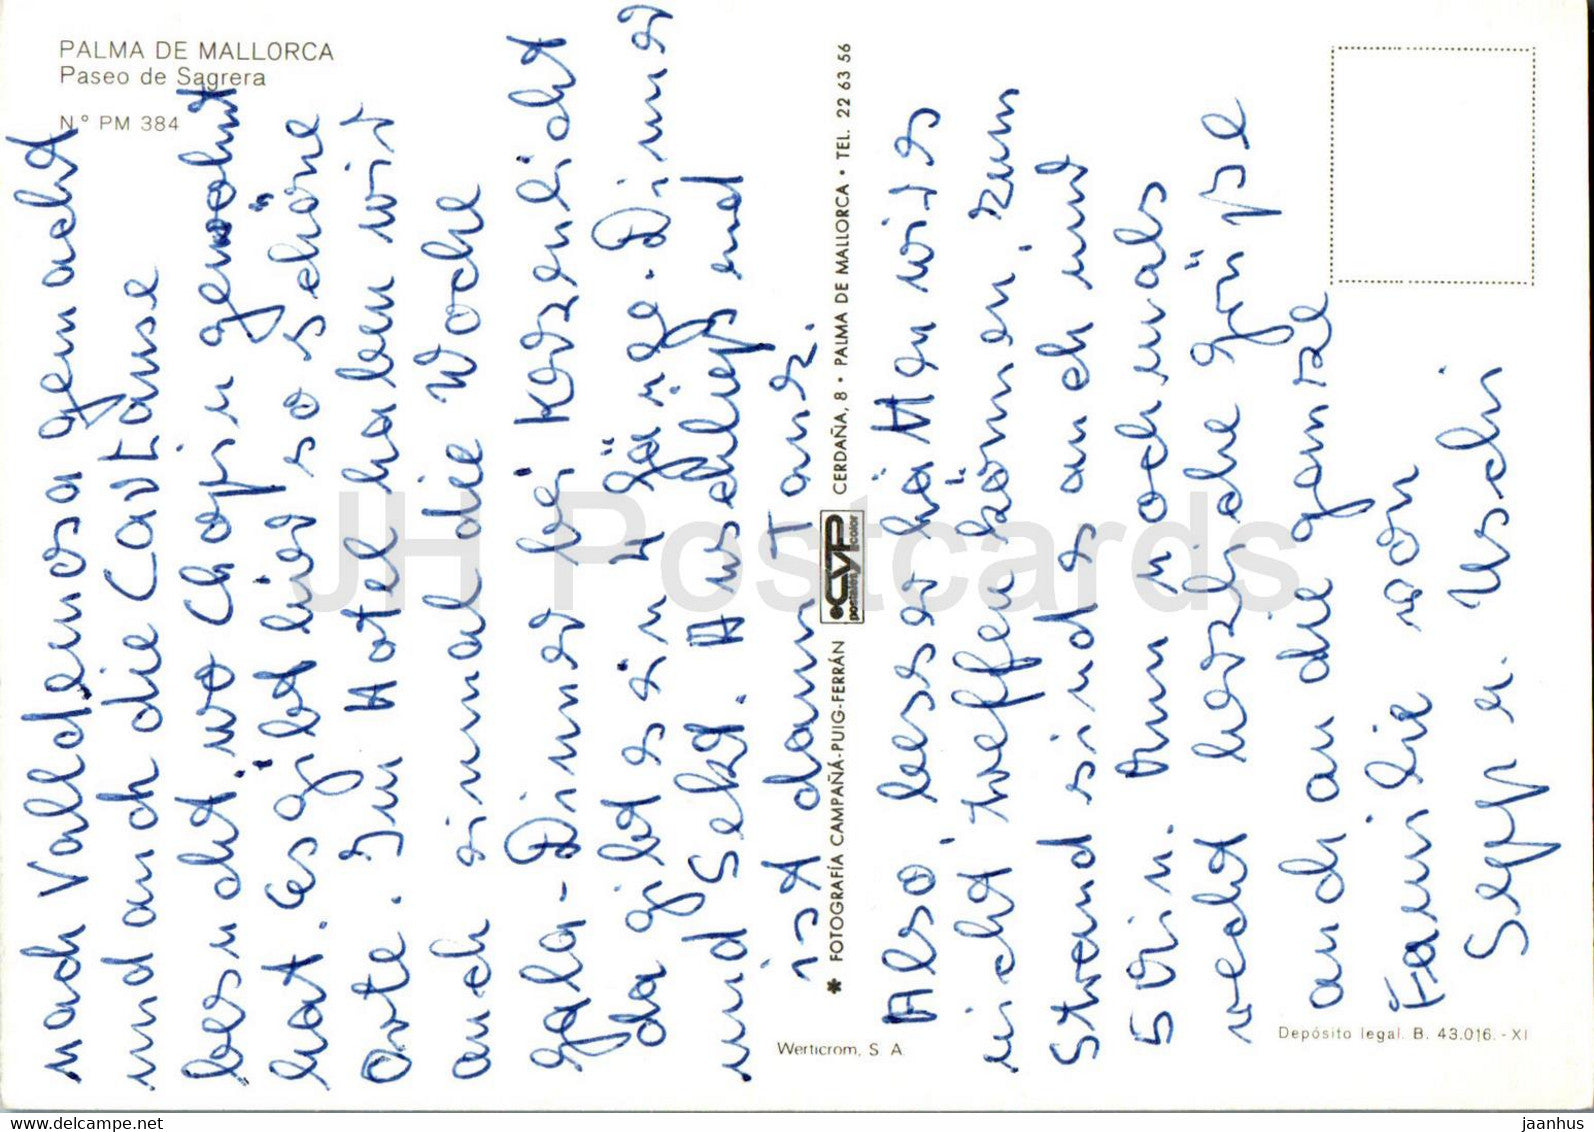 PALMA DE MALLORCA
Paseo de Sagrera
N.° PM 384
nach Valldemosa gemacht
und auch die Cartause
besucht, wo Chopin gewohnt
hat. Es gibt hier so schöne
Orte. Im Hotel haben wir
auch einmal die Woche
Gala-Dinner bei Kerzenlicht
da gibt es ein 4 gänge-Dinner
und Sekt. Anschließend
ist dann Tanz.
Also, besser hätten wir es
nicht treffen können, zum
Strand sind es auch nur
5 Min. Nun nochmals
recht herzliche Grüße
auch an die ganze
Familie von
Sepp u. Uschi
✱ FOTOGRAFÍA CAMPAÑÁ-PUIG-FERRÁN
CYP
postales color
CERDAÑA, 8 • PALMA DE MALLORCA • TEL. 22 63 56
Werticrom, S A.
Depósito legal. B. 43.016.-XI
JH Postcards
www.delcampe.net
jaanhus